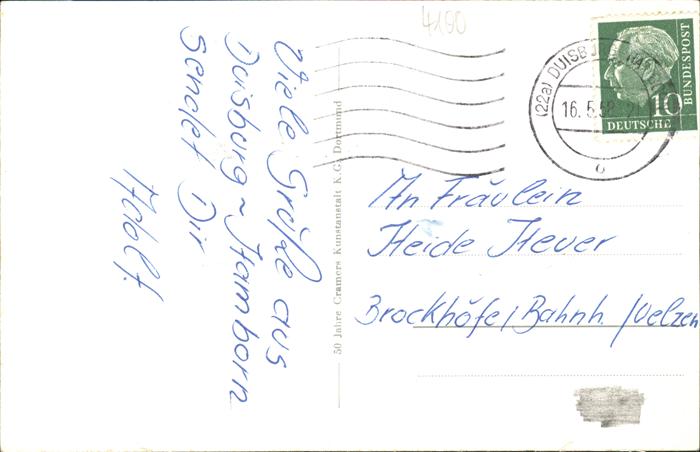 4100
Viele Grüße aus
Duisburg ~ Hamborn
sendet Dir
Adolf.
50 Jahre Cramers Kunstanstalt K.G., Dortmund
(22a) DUISBURG
16. 5. 58
10
DEUTSCHE
BUNDESPOST
c
An Fräulein
Heide Hever
Brockhöfe / Bahnh. / Uelzen